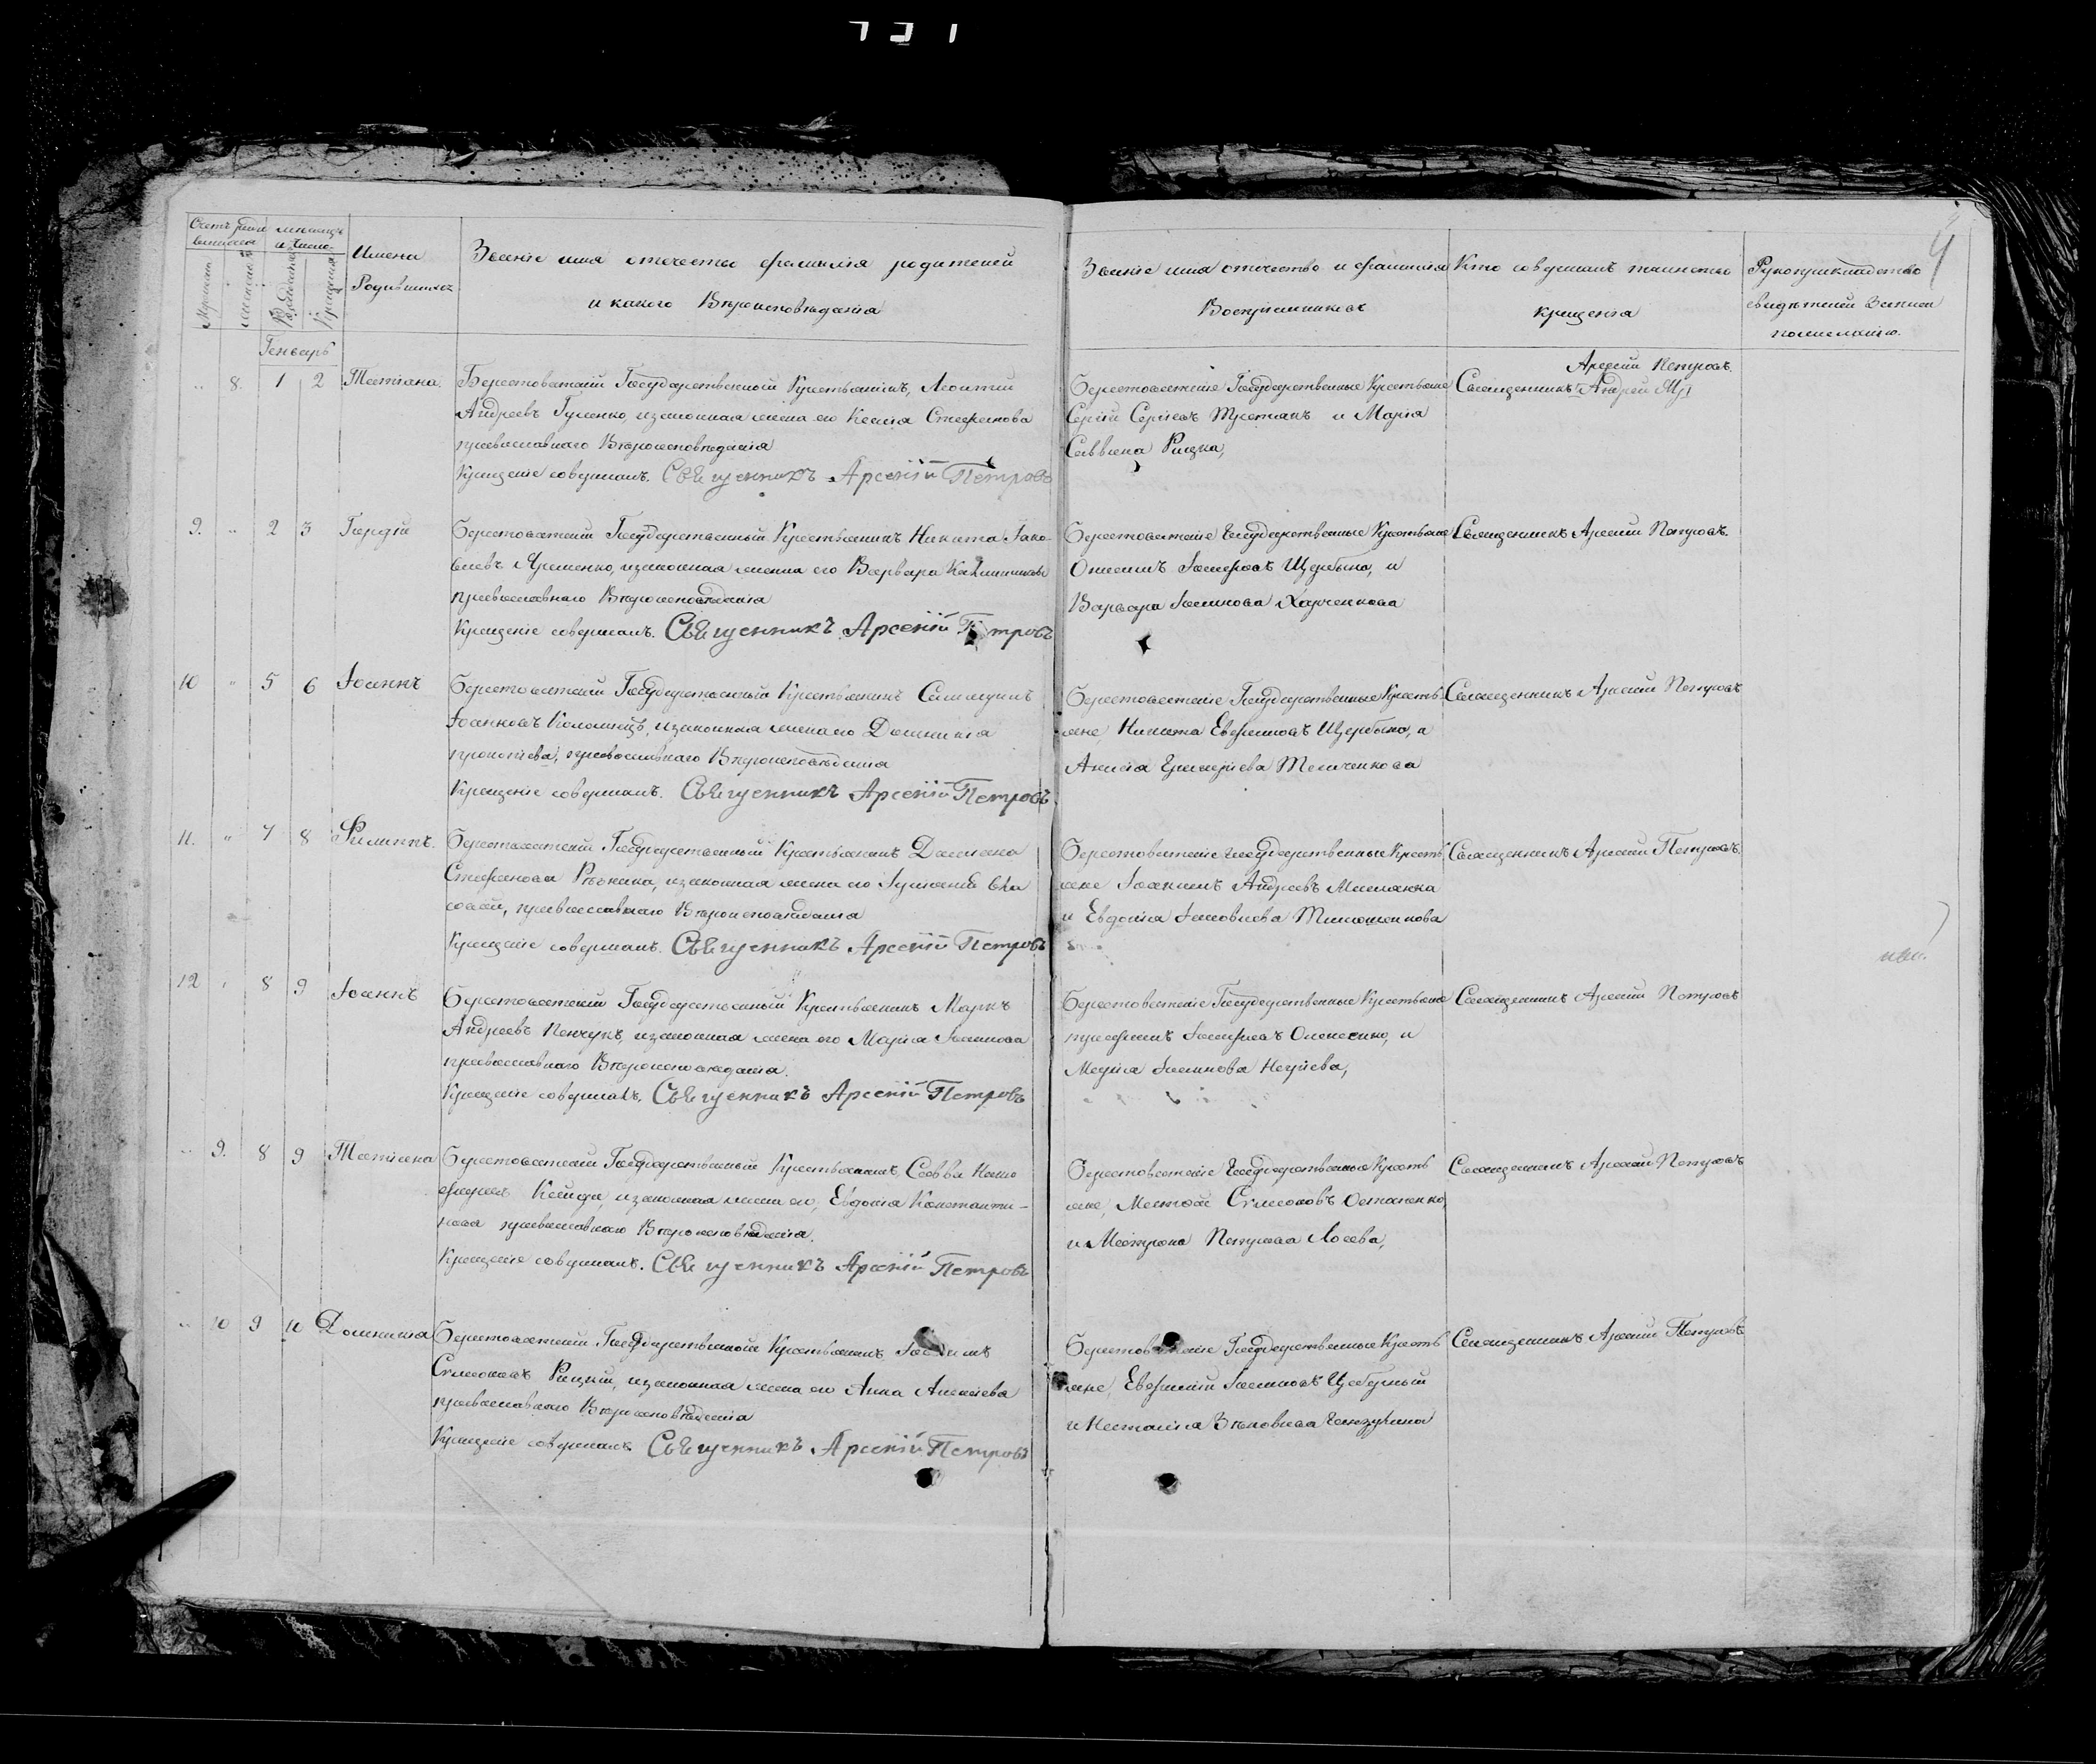 4
Счетъ родившихся
мѣсяцъ и число
Мужескаго
женскаго
Рожденія
Крещенія
Имена Родившихся
Званіе имя отечество фамилія родителей
и какого Вѣроисповѣданія
Званіе имя отечество и фамилія
Воспріемниковъ
Кто совершалъ таинство
крещенія
Рукоприкладство
свидѣтелей записи
по желанію.
Генварь
8. 1 2 Татіана.
Берестоватскій Государственный Крестьянинъ, Леонтій
Андреевъ Гуленко, изаконная жена его Ксенія Стефанова
православнаго Вѣроисповѣданія
Крещеніе совершалъ. Священникъ Арсеній Петровъ
Берестоватскіе Государственные Крестьяне
Сергій Сергіевъ и Марія
Саввина Рицка,
Арсеній Петровъ.
Священникъ Андрей
9. " 2 3 Гордій
Берестоватскій Государственный Крестьянинъ Никита Іако-
влевъ Яременко, изаконная жена его Варвара
православнаго Вѣроисповѣданія
Крещеніе совершалъ. Священникъ Арсеній Петровъ
Берестоватскіе Государственные Крестьяне
Онисимъ Іосифовъ Щербина, и
Варвара Іоаннова Харченкова
Священникъ Арсеній Петровъ.
10 " 5 6 Іоаннъ
Берестоватскій Государственный Крестьянинъ
Іоанновъ Коломіецъ, изаконная жена его Домникія
прокопіева, православнаго Вѣроисповѣданія
Крещеніе совершалъ. Священникъ Арсеній Петровъ.
Берестоватскіе Государственные Кресть-
яне, Никита Евфимовъ Щербина, и
Акилина Григоріева
Священникъ Арсеній Петровъ
11. " 7 8 Филиппъ.
Берестоватскій Государственный Крестьянинъ Даміана
Стефанова Рѣзника, изаконная жена его
православнаго Вѣроисповѣданія
Крещеніе совершалъ. Священникъ Арсеній Петровъ
Берестоватскіе Государственные Кресть-
яне Іоакимъ Андреевъ
и Евдокія Іаковлева Тимошенкова
Священникъ Арсеній Петровъ.
12 " 8 9 Іоаннъ
Берестоватскій Государственный Крестьянинъ Маркъ
Андреевъ Панчукъ, изаконная жена его Марія Іоаннова
православнаго Вѣроисповѣданія.
Крещеніе совершалъ. Священникъ Арсеній Петровъ
Берестоватскіе Государственные Крестьяне
и
Марія Іоаннова
Священникъ Арсеній Петровъ
" 9. 8 9 Татіана
Берестоватскій Государственный Крестьянинъ Савва
изаконная жена его, Евдокія Константи-
нова православнаго Вѣроисповѣданія.
Крещеніе совершалъ. Священникъ Арсеній Петровъ
Берестоватскіе Государственные Кресть-
яне, Матвѣй Симеоновъ Остапенко,
и Матрона Петрова Лосева,
Священникъ Арсеній Петровъ
" 10 9 10 Домникія
Берестоватскій Государственный Крестьянинъ
Симеоновъ Рицкій, изаконная жена его Анна Алексіева
православнаго Вѣроисповѣданія
Крещеніе совершалъ Священникъ Арсеній Петровъ
Берестоватскіе Государственные Кресть-
яне, Евфимій Іоанновъ
и Наталія
Священникъ Арсеній Петровъ